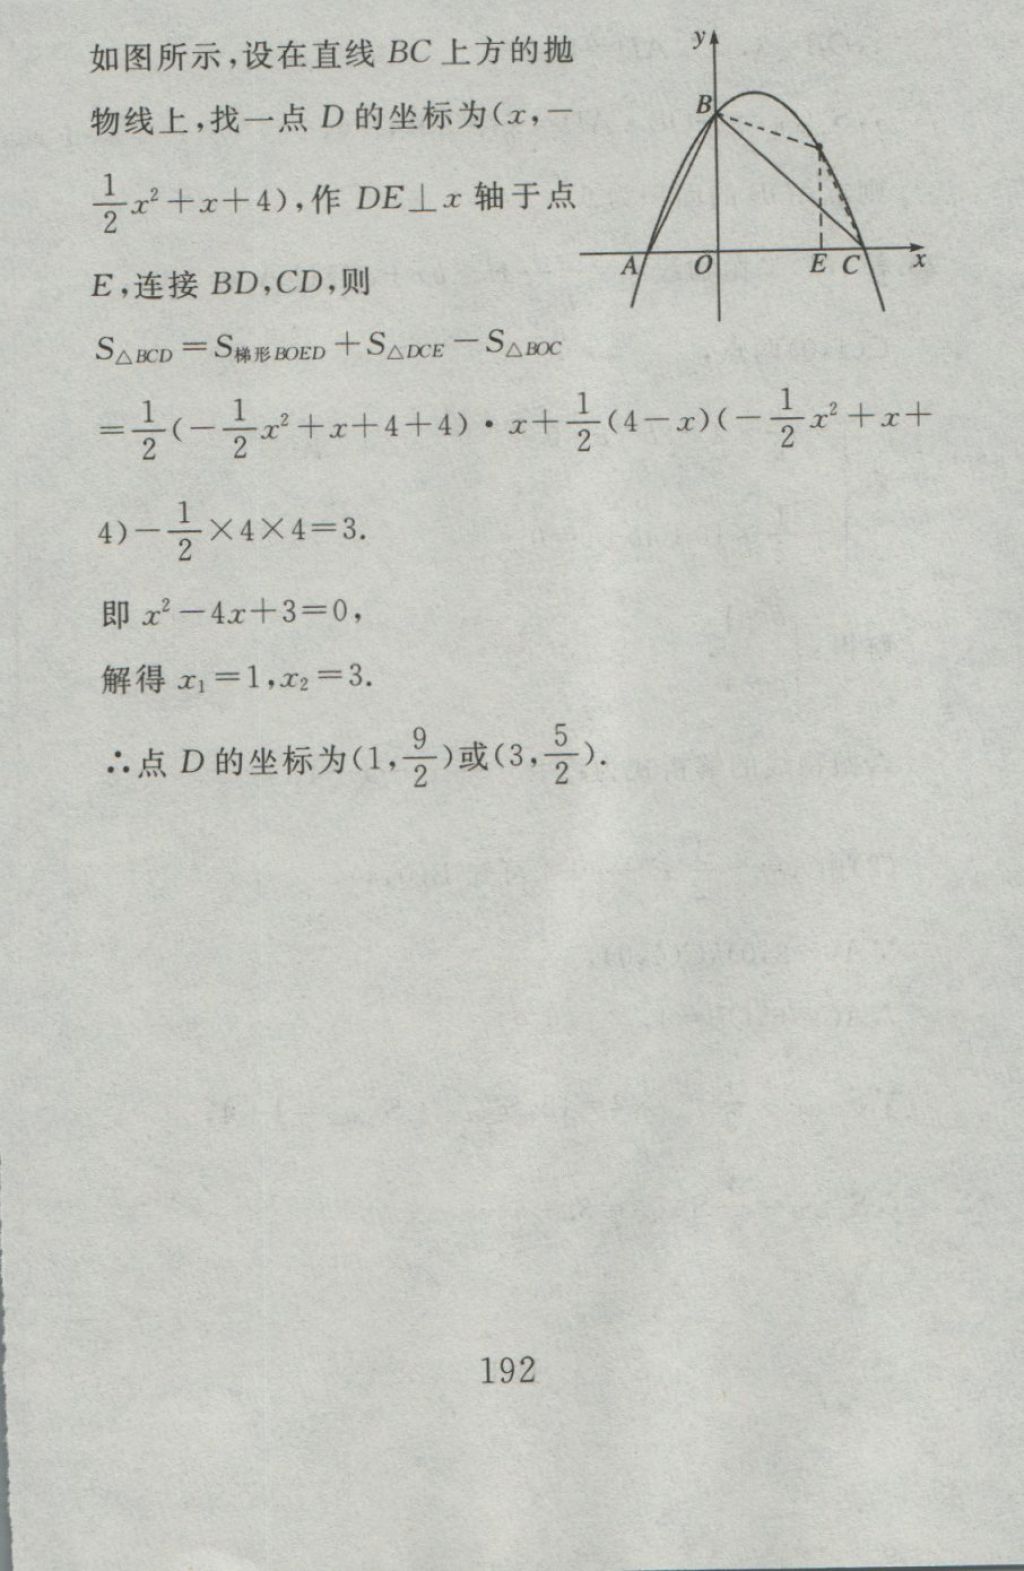 如图所示,设在直线 BC 上方的抛
物线上,找一点 D 的坐标为(x,−
1/2 x²+x+4),作 DE⊥x 轴于点
E,连接 BD,CD,则
S△BCD=S梯形BOED+S△DCE−S△BOC
=1/2(−1/2 x²+x+4+4)·x+1/2(4−x)(−1/2 x²+x+
4)−1/2×4×4=3.
即 x²−4x+3=0,
解得 x₁=1,x₂=3.
∴点 D 的坐标为(1,9/2)或(3,5/2).
y
B
A
O
E
C
x
192